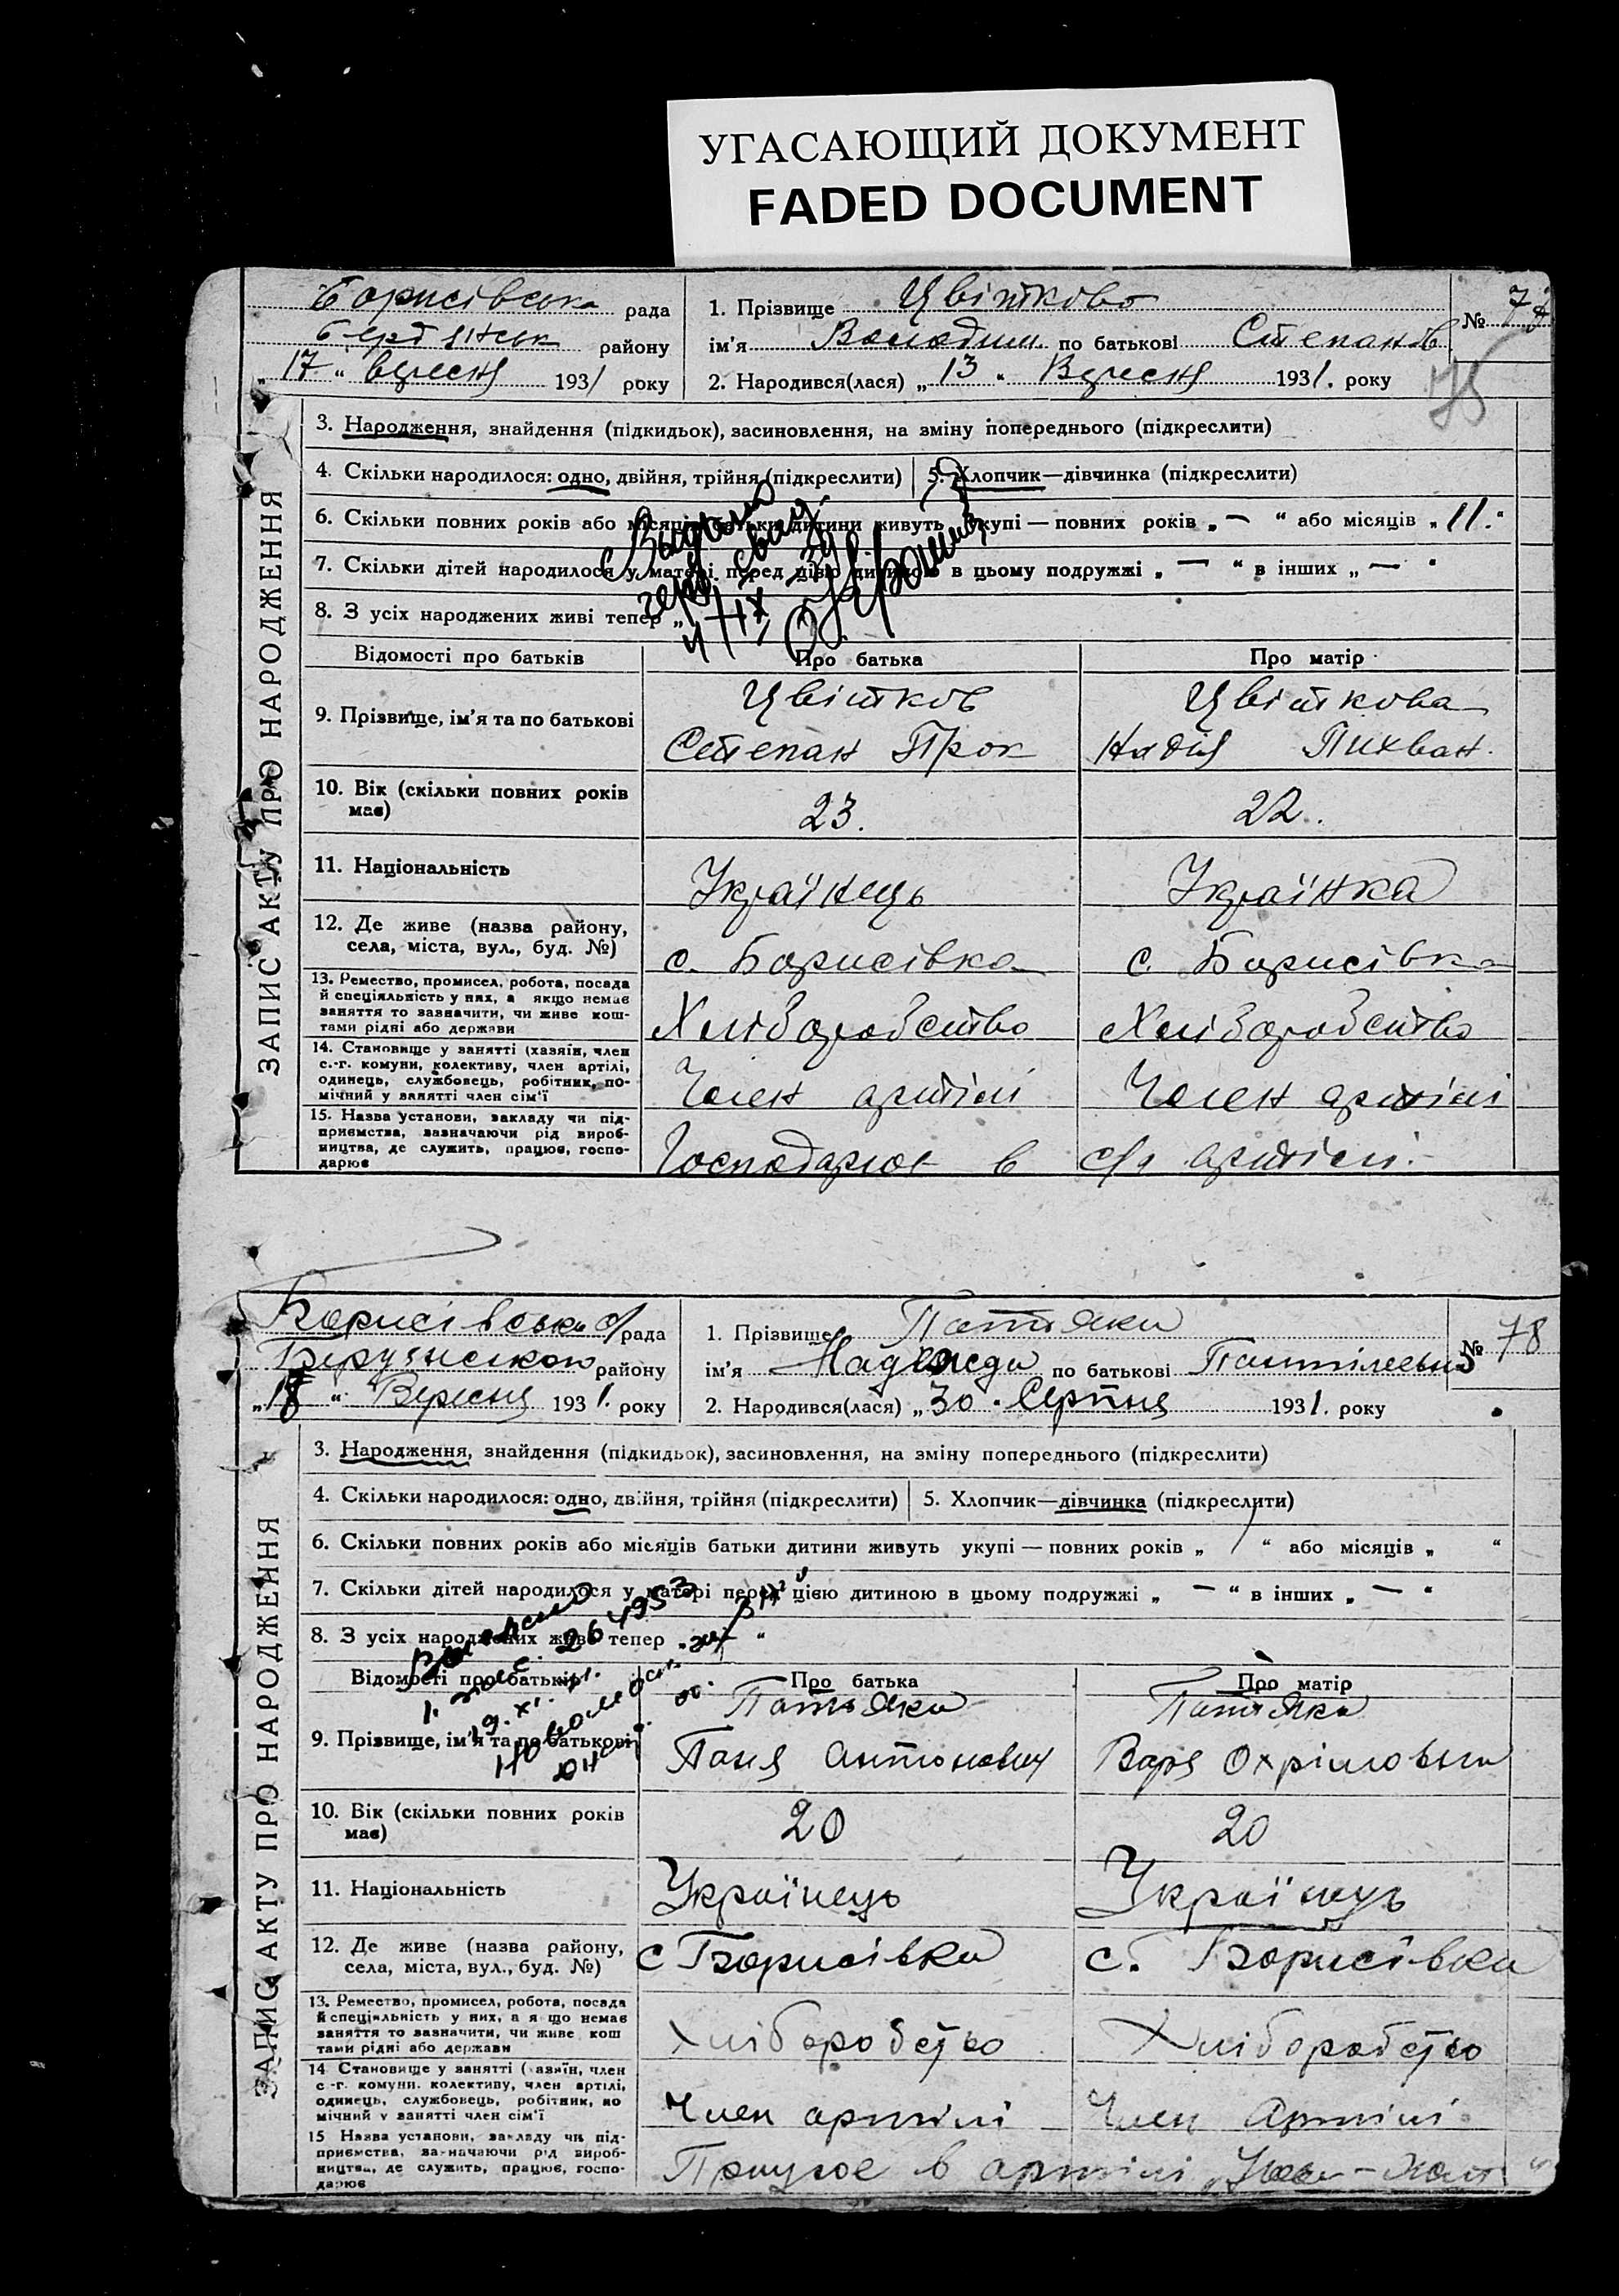 УГАСАЮЩИЙ ДОКУМЕНТ
FADED DOCUMENT
Борисівська рада
Бердянськ району
„17“ вересня 1931 року
1. Прізвище Цвітково
ім'я Володим. по батькові Степанов
2. Народився(лася) „13“ Вересня 1931. року
№
75
ЗАПИС АКТУ ПРО НАРОДЖЕННЯ
3. Народження, знайдення (підкидьок), засиновлення, на зміну попереднього (підкреслити)
4. Скільки народилося: одно, двійня, трійня (підкреслити)
5. Хлопчик—дівчинка (підкреслити)
6. Скільки повних років або місяців батьки дитини живуть укупі — повних років „ — “ або місяців „ 11. “
7. Скільки дітей народилося у матері перед цією дитиною в цьому подружжі „ — “ в інших „ — “
8. З усіх народжених живі тепер „
Відомості про батьків
Про батька
Про матір
9. Прізвище, ім'я та по батькові
Цвітков
Степан Прок
Цвіткова
Надія Пихван.
10. Вік (скільки повних років
має)
23.
22.
11. Національність
Українець
Українка
12. Де живе (назва району,
села, міста, вул., буд. №)
с. Борисівка
с. Борисівка
13. Ремество, промисел, робота, посада
й спеціяльність у них, а якщо немає
заняття то зазначити, чи живе кош-
тами рідні або держави
Хліборобство
Хліборобство
14. Становище у занятті (хазяїн, член
с.-г. комуни, колективу, член артілі,
одинець, службовець, робітник, по-
мічний у занятті член сім'ї
Член артілі
Член артілі
15. Назва установи, закладу чи під-
приємства, зазначаючи рід вироб-
ництва, де служить, працює, госпо-
дарює
Господарює в с/г артілі.
Борисівська с/рада
Бердянського району
„18“ Вересня 1931. року
1. Прізвище Патяка
ім'я Надежда по батькові Пантілеевна
2. Народився(лася) „30. Серпня 1931. року
№ 78
ЗАПИС АКТУ ПРО НАРОДЖЕННЯ
3. Народження, знайдення (підкидьок), засиновлення, на зміну попереднього (підкреслити)
4. Скільки народилося: одно, двійня, трійня (підкреслити)
5. Хлопчик—дівчинка (підкреслити)
6. Скільки повних років або місяців батьки дитини живуть укупі — повних років „ / “ або місяців „ “
7. Скільки дітей народилося у матері перед цією дитиною в цьому подружжі „ — “ в інших „ — “
8. З усіх народжених живі тепер „ “
Відомості про батьків
Про батька
Про матір
9. Прізвище, ім'я та по батькові
Патьяка
Паня Антонович
Патяка
Варя Охрімовна
10. Вік (скільки повних років
має)
20
20
11. Національність
Українець
Українць
12. Де живе (назва району,
села, міста, вул., буд. №)
с Борисівка
с. Борисівка
13. Ремество, промисел, робота, посада
й спеціяльність у них, а я що немає
заняття то зазначити, чи живе кош
тами рідні або держави
Хліборобство
Хліборобство
14 Становище у занятті ( азяїн, член
с -г. комуни. колективу, член артілі,
одинець, службовець, робітник, по
мічний у занятті член сім'ї
Член артілі
Член Артілі
15 Назва установи, закладу чи під-
приємства, зазначаючи рід вироб-
ництва, де служить, працює, госпо-
дарює
Працює в артілі